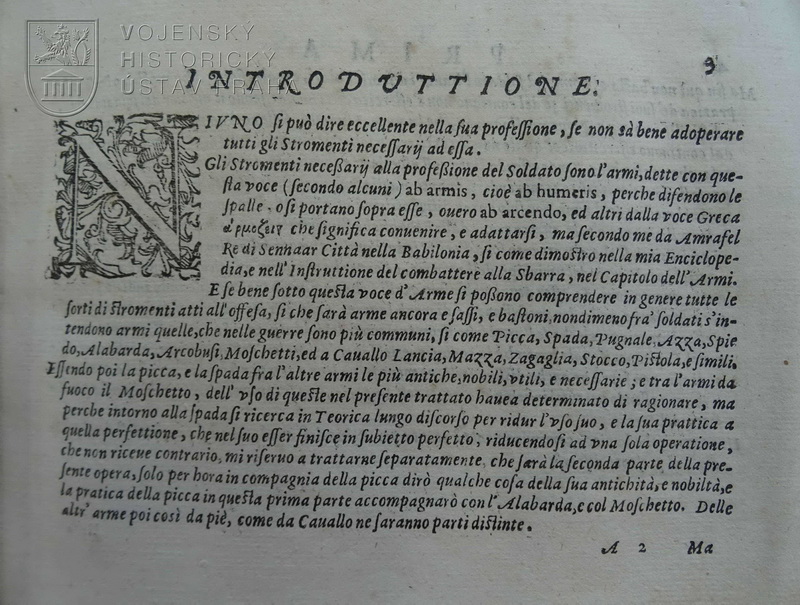 VOJENSKÝ
HISTORICKÝ
ÚSTAV PRAHA
PRIMA
3
INTRODVTTIONE.
NIVNO ſi può dire eccellente nella ſua profeſſione, ſe non sà bene adoperare
tutti gli Stromenti neceſſarij ad eſſa.
Gli Stromenti neceßarij alla profeßione del Soldato ſono l'armi, dette con que-
ſta voce (ſecondo alcuni) ab armis, cioè ab humeris, perche difendono le
ſpalle, o ſi portano ſopra eſſe, ouero ab arcendo, ed altri dalla voce Greca
che ſignifica conuenire, e adattarſi, ma ſecondo me da Amrafel
Re di Sennaar Città nella Babilonia, ſi come dimoſtro nella mia Enciclope-
dia, e nell'Inſtruttione del combattere alla Sbarra, nel Capitolo dell'Armi.
E ſe bene ſotto queſta voce d'Arme ſi poßono comprendere in genere tutte le
ſorti di ſtromenti atti all'offeſa, ſi che ſarà arme ancora e ſaſſi, e baſtoni, nondimeno fra' ſoldati s'in-
tendono armi quelle, che nelle guerre ſono più communi, ſi come Picca, Spada, Pugnale, Azza, Spie
do, Alabarda, Arcobuſi, Moſchetti, ed a Cauallo Lancia, Mazza, Zagaglia, Stocco, Piſtola, e ſimili.
Eſſendo poi la picca, e la ſpada fra l'altre armi le più antiche, nobili, vtili, e neceſſarie; e tra l'armi da
fuoco il Moſchetto, dell'vſo di queſte nel preſente trattato hauea determinato di ragionare, ma
perche intorno alla ſpada ſi ricerca in Teorica lungo diſcorſo per ridur l'vſo ſuo, e la ſua prattica a
quella perfettione, che nel ſuo eſſer finiſce in ſubietto perfetto, riducendoſi ad vna ſola operatione,
che non riceue contrario, mi riſeruo a trattarne ſeparatamente, che ſarà la ſeconda parte della pre-
ſente opera, ſolo per hora in compagnia della picca dirò qualche coſa della ſua antichità, e nobiltà, e
la pratica della picca in queſta prima parte accompagnarò con l'Alabarda, e col Moſchetto. Delle
altr'arme poi così da piè, come da Cauallo ne ſaranno parti diſtinte.
A 2 Ma